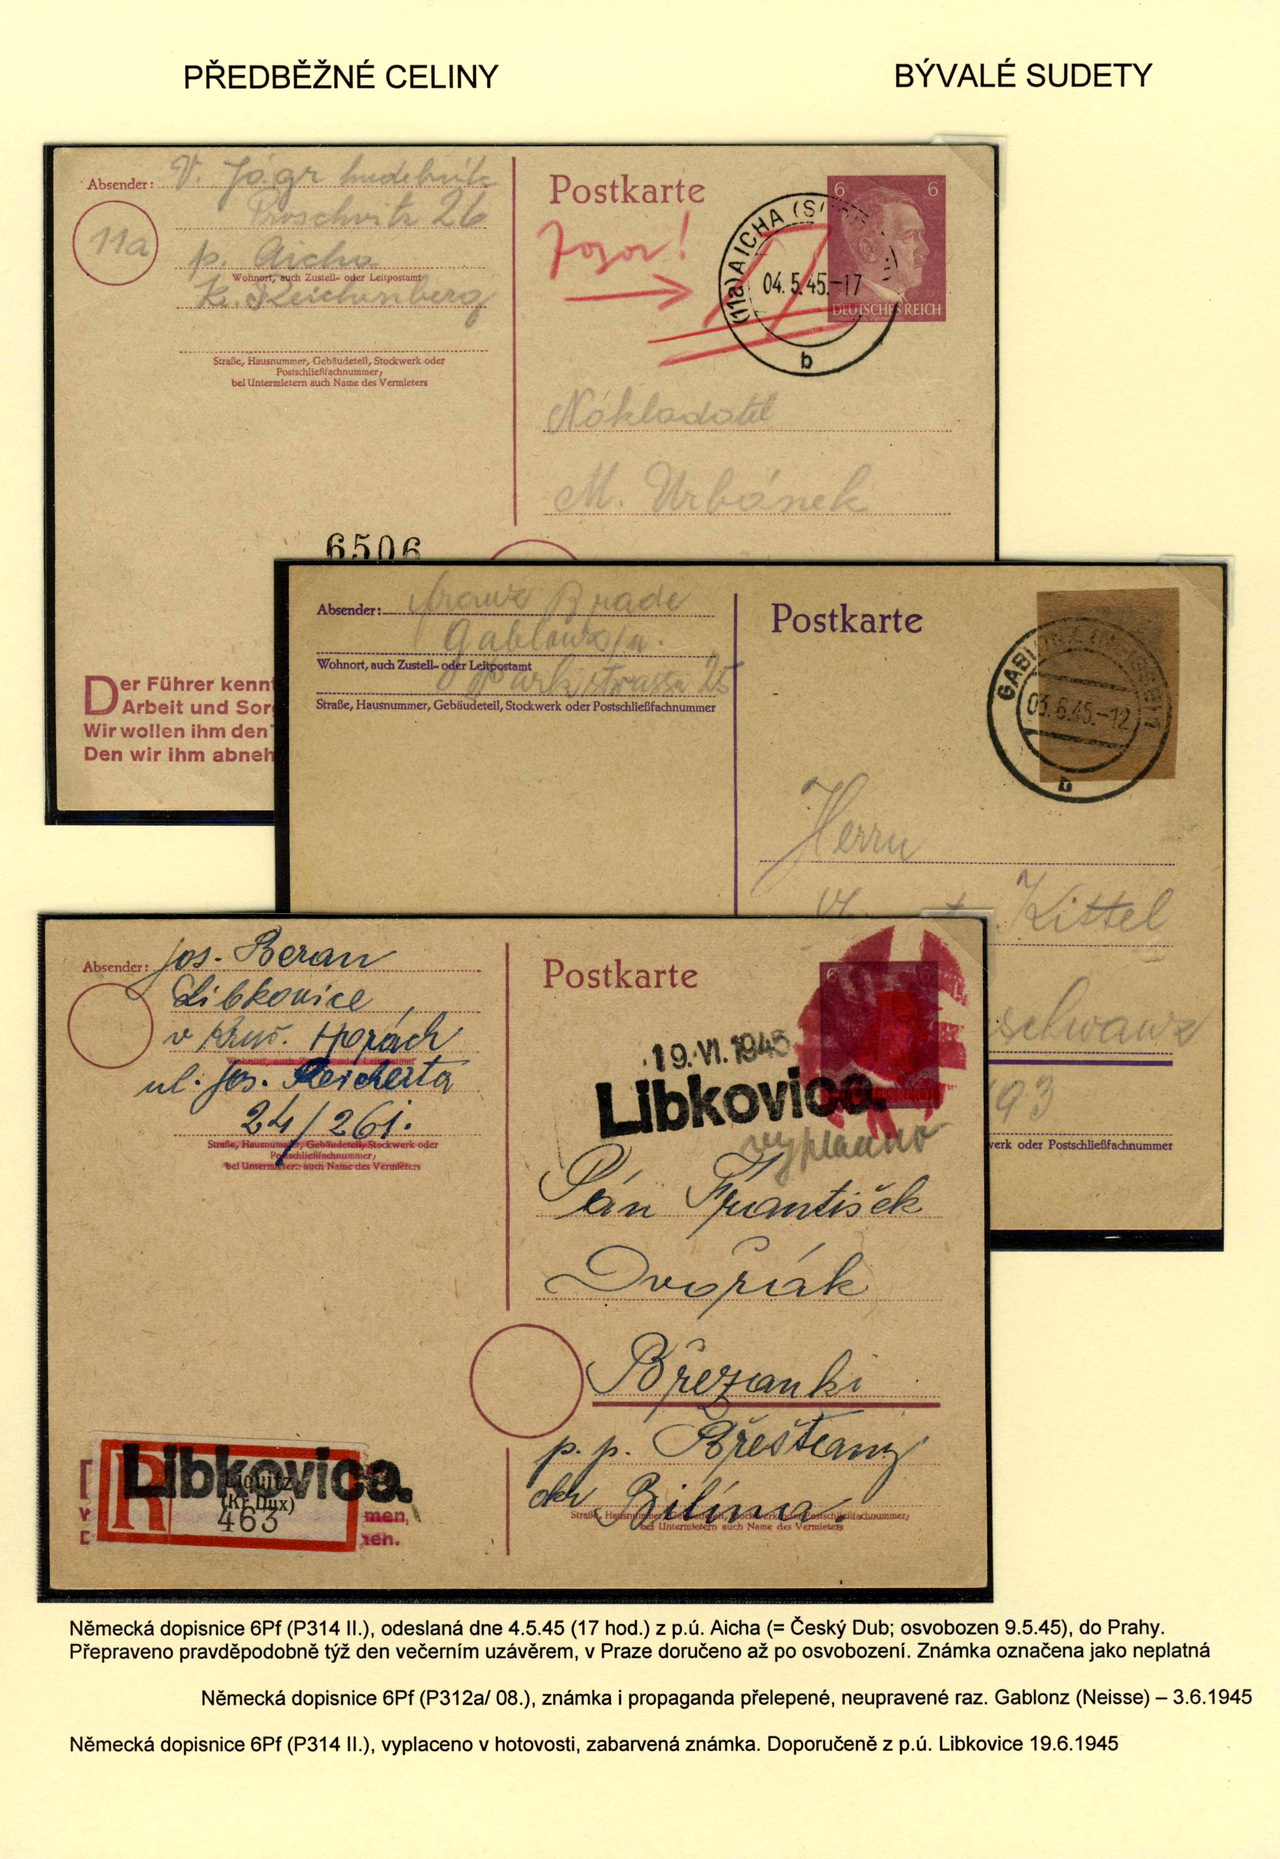 PŘEDBĚŽNÉ CELINY
BÝVALÉ SUDETY
Absender: V. Jágr hudebník
Proschwitz 26
11a
p. Aicha
Wohnort, auch Zustell- oder Leitpostamt
Kr. Reichenberg
Straße, Hausnummer, Gebäudeteil, Stockwerk oder
Postschließfachnummer;
bei Untermietern auch Name des Vermieters
Postkarte
6 6
DEUTSCHES REICH
(11a) AICHA (S
04.5.45.-17
b
Nakladatel
M. Urbánek
6506
Der Führer kennt
Arbeit und Sor
Wir wollen ihm den
Den wir ihm abneh
Absender: Franz Brade
Gablonz/n.
Wohnort, auch Zustell- oder Leitpostamt
Parkstrasse 25
Straße, Hausnummer, Gebäudeteil, Stockwerk oder Postschließfachnummer
Postkarte
GABLONZ (NEISSE) 1
03.6.45.-12
b
Herrn
Kittel
schwanz
93
werk oder Postschließfachnummer
Absender: Jos. Beran
Libkovice
v Kruš. Horách
Wohnort, auch Zustell- oder Leitpostamt
ul. Jos. Reicherta
24/261.
Straße, Hausnummer, Gebäudeteil, Stockwerk oder
Postschließfachnummer;
bei Untermietern auch Name des Vermieters
Postkarte
6 6
19.VI.1945
Libkovice.
vyplaceno
Pán František
Dvořák
Březánki
p. p. Břešťany
okr Bílina.
Straße, Hausnummer, Gebäudeteil, Stockwerk oder Postschließfachnummer;
bei Untermietern auch Name des Vermieters
Libkovice.
R
Liquitz
(Kr Dux)
463
men,
hen.
Německá dopisnice 6Pf (P314 II.), odeslaná dne 4.5.45 (17 hod.) z p.ú. Aicha (= Český Dub; osvobozen 9.5.45), do Prahy.
Přepraveno pravděpodobně týž den večerním uzávěrem, v Praze doručeno až po osvobození. Známka označena jako neplatná
Německá dopisnice 6Pf (P312a/ 08.), známka i propaganda přelepené, neupravené raz. Gablonz (Neisse) – 3.6.1945
Německá dopisnice 6Pf (P314 II.), vyplaceno v hotovosti, zabarvená známka. Doporučeně z p.ú. Libkovice 19.6.1945